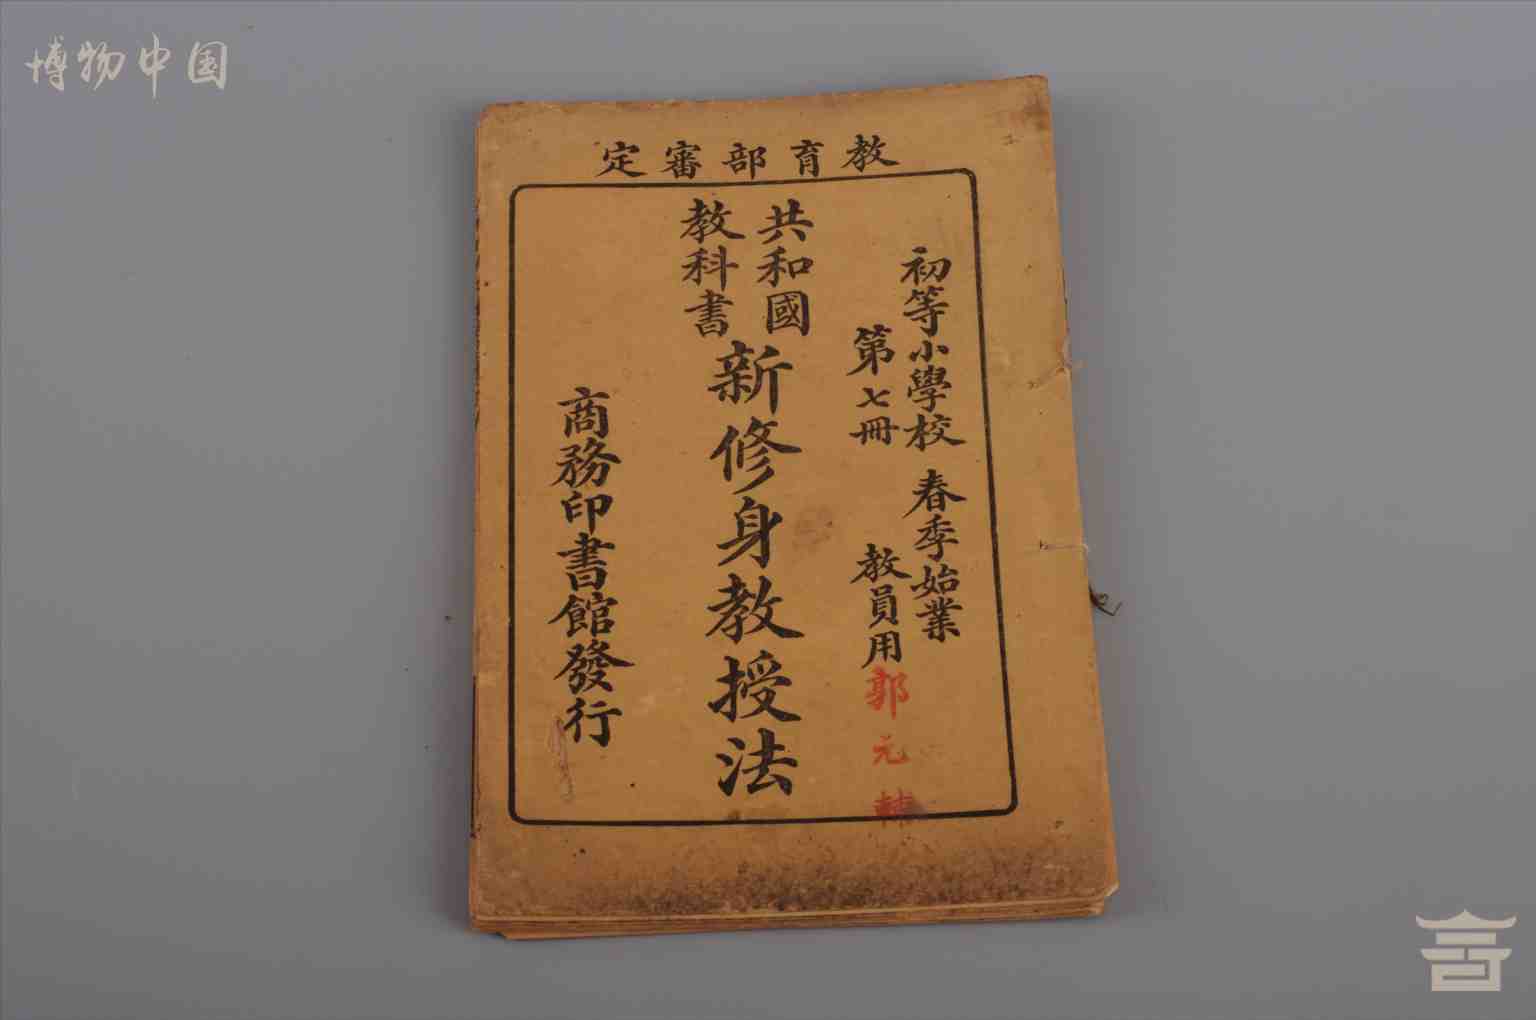 博物中国
教育部審定
初等小學校 春季始業
第七冊 教員用
郭元輔
共和國
教科書
新修身教授法
商務印書館發行